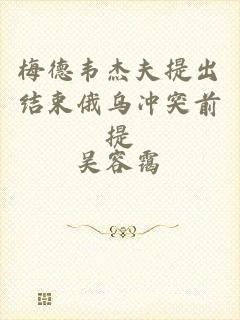 梅德韦杰夫提出
结束俄乌冲突前
提
吴容霭